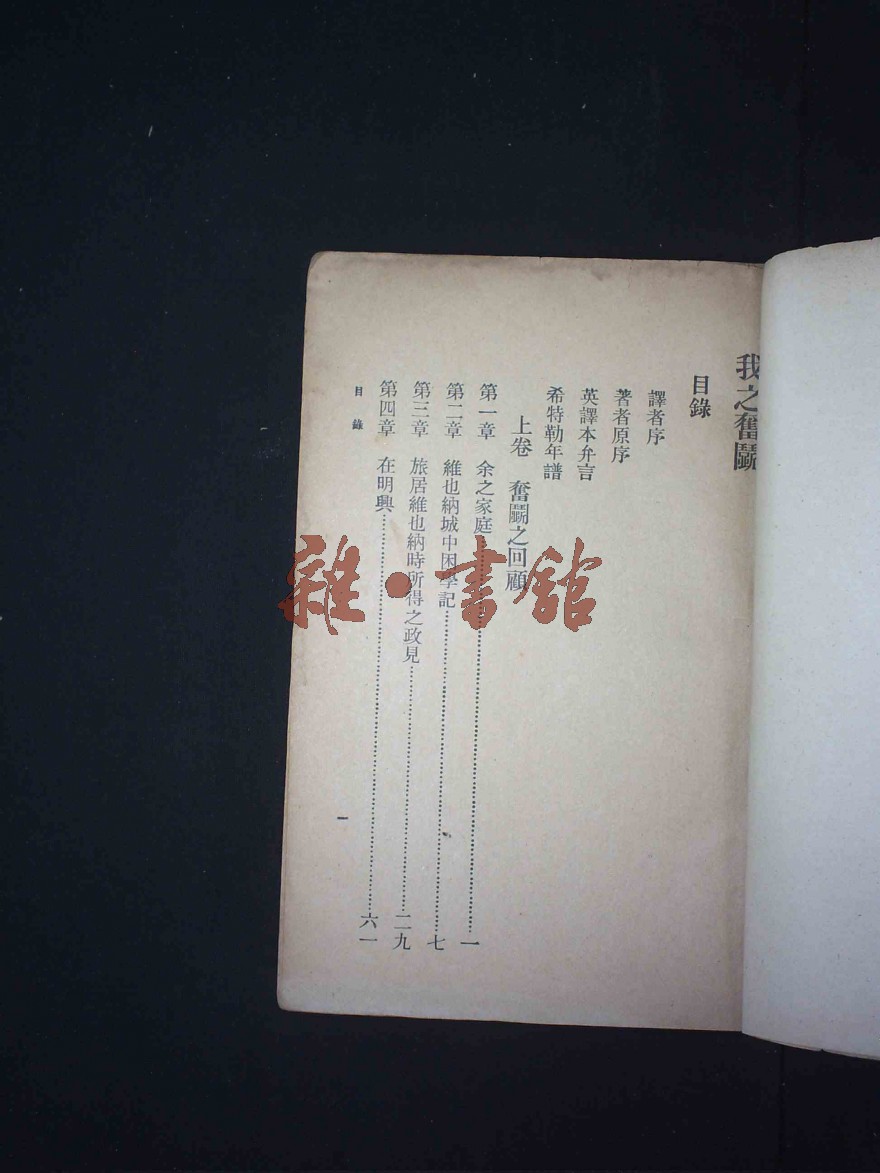 我之奮鬭
目錄
譯者序
著者原序
英譯本弁言
希特勒年譜
上卷 奮鬭之回顧
第一章 余之家庭……一
第二章 維也納城中困學記……七
第三章 旅居維也納時所得之政見……二九
第四章 在明興……六一
目錄
一
雜·書館